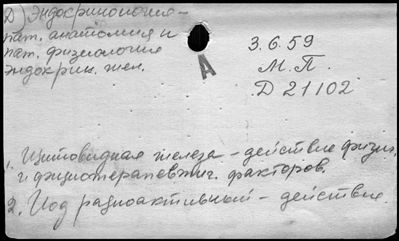 Д) Эндокринология -
пат. анатомия и
пат. физиология
эндокрин. жел.
А
3.6.59
М.П.
Д 21102
1. Щитовидная железа - действие физич.
и физиотерапевтич. факторов.
2. Иод радиоактивный - действие.